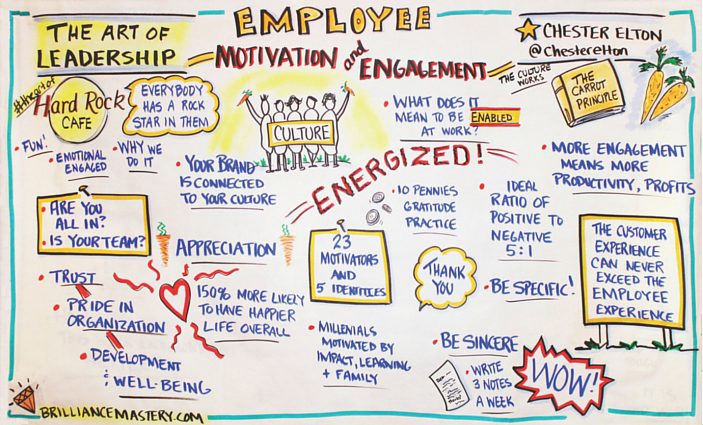 THE ART OF
LEADERSHIP
EMPLOYEE
MOTIVATION and
ENGAGEMENT
CHESTER ELTON
@Chesterelton
THE CULTURE
WORKS
THE
CARROT
PRINCIPLE
Hard Rock
CAFE
EVERYBODY
HAS A ROCK
STAR IN THEM
• FUN!
• EMOTIONAL
ENGAGED
• WHY WE
DO IT
• YOUR BRAND
IS CONNECTED
TO YOUR CULTURE
CULTURE
• WHAT DOES IT
MEAN TO BE ENABLED
AT WORK?
ENERGIZED!
• MORE ENGAGEMENT
MEANS MORE
PRODUCTIVITY, PROFITS
• ARE YOU
ALL IN?
• IS YOUR TEAM?
APPRECIATION
• 10 PENNIES
GRATITUDE
PRACTICE
• IDEAL
RATIO OF
POSITIVE TO
NEGATIVE
5:1
23
MOTIVATORS
AND
5 IDENTITIES
THANK
YOU
• BE SPECIFIC!
THE CUSTOMER
EXPERIENCE
CAN NEVER
EXCEED THE
EMPLOYEE
EXPERIENCE
• TRUST
• PRIDE IN
ORGANIZATION
• DEVELOPMENT
& WELL-BEING
150% MORE LIKELY
TO HAVE HAPPIER
LIFE OVERALL
• MILLENIALS
MOTIVATED BY
IMPACT, LEARNING
+ FAMILY
• BE SINCERE
• WRITE
3 NOTES
A WEEK
WOW!
BRILLIANCEMASTERY.COM